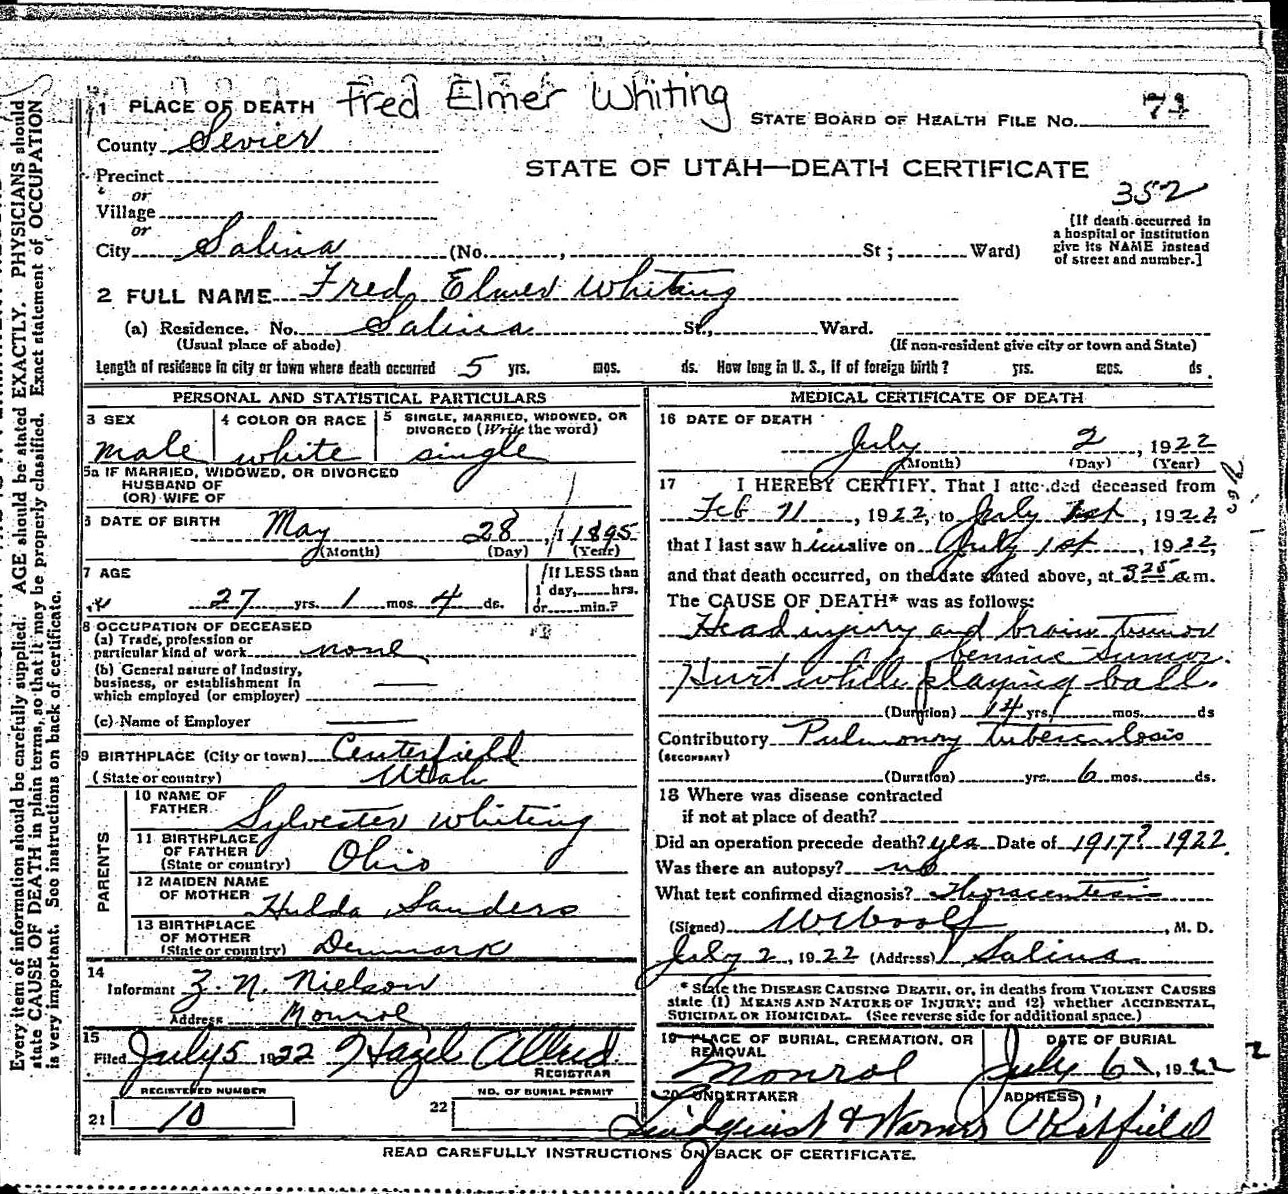 Fred Elmer Whiting
1 PLACE OF DEATH
STATE BOARD OF HEALTH FILE No. 71
County Sevier
STATE OF UTAH—DEATH CERTIFICATE
Precinct
or
352
Village
or
City Salina (No. , St ; Ward)
[If death occurred in
a hospital or institution
give its NAME instead
of street and number.]
2 FULL NAME Fred Elmer Whiting
(a) Residence. No. Salina St., Ward.
(Usual place of abode) (If non-resident give city or town and State)
Length of residence in city or town where death occurred 5 yrs. mos. ds. How long in U. S., if of foreign birth? yrs. mos. ds.
PERSONAL AND STATISTICAL PARTICULARS
3 SEX 4 COLOR OR RACE 5 SINGLE, MARRIED, WIDOWED, OR
DIVORCED (Write the word)
male white single
5a IF MARRIED, WIDOWED, OR DIVORCED
HUSBAND OF
(OR) WIFE OF
6 DATE OF BIRTH May 28, 1895
(Month) (Day) (Year)
7 AGE
27 yrs. 1 mos. 4 ds.
If LESS than
1 day, hrs.
or min.?
8 OCCUPATION OF DECEASED
(a) Trade, profession or
particular kind of work none
(b) General nature of industry,
business, or establishment in
which employed (or employer)
(c) Name of Employer
9 BIRTHPLACE (City or town) Centerfield
(State or country) Utah
PARENTS
10 NAME OF
FATHER Sylvester Whiting
11 BIRTHPLACE
OF FATHER
(State or country) Ohio
12 MAIDEN NAME
OF MOTHER Hulda Sanders
13 BIRTHPLACE
OF MOTHER
(State or country) Denmark
14
Informant Z. N. Nielson
Address Monroe
15
Filed July 5 1922 Hazel Allred
REGISTRAR
REGISTERED NUMBER NO. OF BURIAL PERMIT
21 10 22
MEDICAL CERTIFICATE OF DEATH
16 DATE OF DEATH
July 2, 1922
(Month) (Day) (Year)
17 I HEREBY CERTIFY, That I attended deceased from
Feb 11, 1922, to July 1st, 1922
that I last saw him alive on July 1st, 1922,
and that death occurred, on the date stated above, at 3 25 a m.
The CAUSE OF DEATH* was as follows:
Head injury and brain tumor
tumor.
Hurt while playing ball.
(Duration) 14 yrs. mos. ds
Contributory Pulmonary Tuberculosis
(SECONDARY)
(Duration) yrs. 6 mos. ds.
18 Where was disease contracted
if not at place of death?
Did an operation precede death? yes Date of 1917? 1922
Was there an autopsy? no
What test confirmed diagnosis? Thoracentesis
(Signed) W. Woolf, M. D.
July 2, 1922 (Address) Salina
* State the DISEASE CAUSING DEATH, or, in deaths from VIOLENT CAUSES
state (1) MEANS AND NATURE OF INJURY; and (2) whether ACCIDENTAL,
SUICIDAL OR HOMICIDAL. (See reverse side for additional space.)
19 PLACE OF BURIAL, CREMATION, OR
REMOVAL
Monroe
DATE OF BURIAL
July 6, 1922
20 UNDERTAKER ADDRESS
Lindquist & Richfield
READ CAREFULLY INSTRUCTIONS ON BACK OF CERTIFICATE.
Every item of information should be carefully supplied. AGE should be stated EXACTLY. PHYSICIANS should
state CAUSE OF DEATH in plain terms, so that it may be properly classified. Exact statement of OCCUPATION
is very important. See instructions on back of certificate.